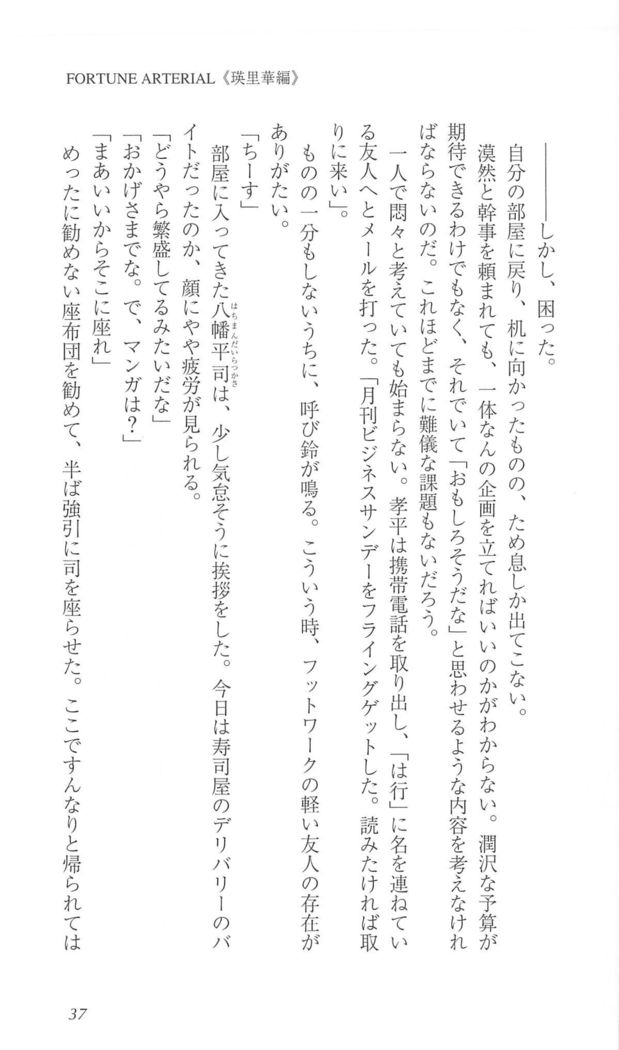 FORTUNE ARTERIAL《瑛里華編》
――しかし、困った。
自分の部屋に戻り、机に向かったものの、ため息しか出てこない。
漠然と幹事を頼まれても、一体なんの企画を立てればいいのかがわからない。潤沢な予算が
期待できるわけでもなく、それでいて「おもしろそうだな」と思わせるような内容を考えなけれ
ばならないのだ。これほどまでに難儀な課題もないだろう。
一人で悶々と考えていても始まらない。孝平は携帯電話を取り出し、「は行」に名を連ねてい
る友人へとメールを打った。「月刊ビジネスサンデーをフライングゲットした。読みたければ取
りに来い」。
ものの一分もしないうちに、呼び鈴が鳴る。こういう時、フットワークの軽い友人の存在が
ありがたい。
「ちーす」
部屋に入ってきた八幡平司は、少し気怠そうに挨拶をした。今日は寿司屋のデリバリーのバ
はちまんだいらつかさ
イトだったのか、顔にやや疲労が見られる。
「どうやら繁盛してるみたいだな」
「おかげさまでな。で、マンガは？」
「まあいいからそこに座れ」
めったに勧めない座布団を勧めて、半ば強引に司を座らせた。ここですんなりと帰られては
37